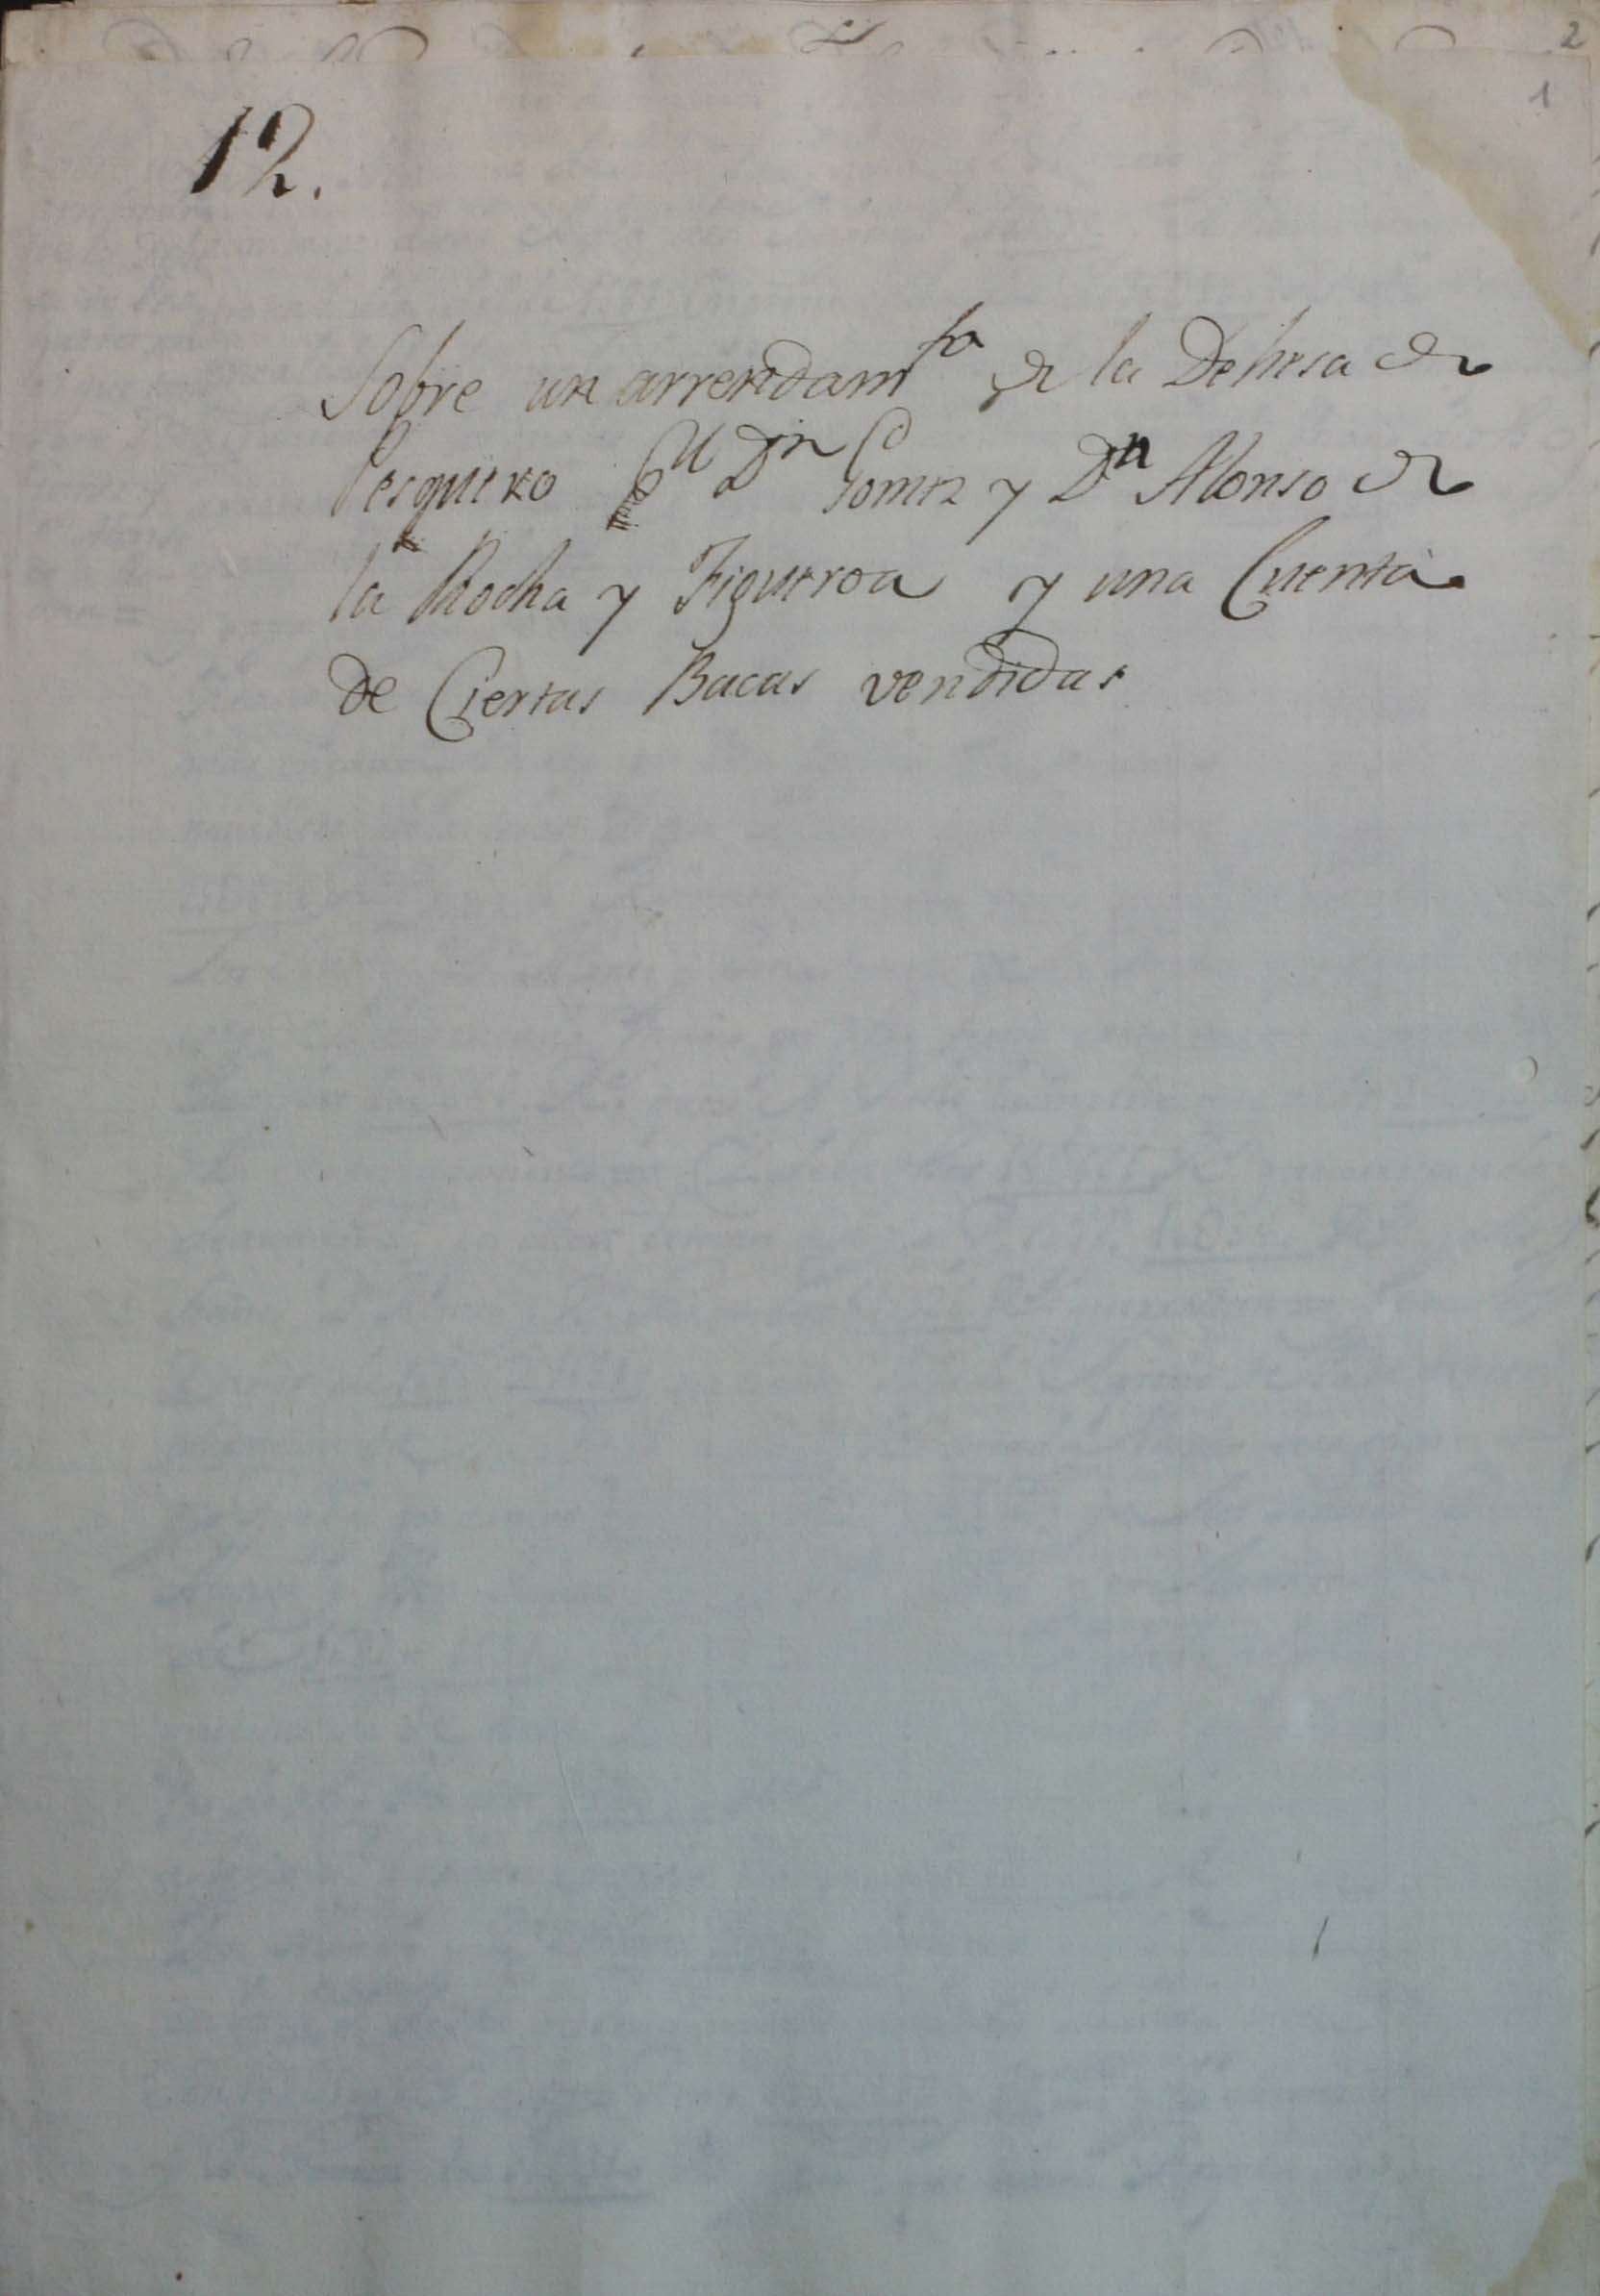 2
1
12.
Sobre un arrendamto de la Dehesa de
Pesquero Dn Gomez y Dn Alonso de
la Rocha y Figueroa y una Cuenta
de Ciertas Bacas vendidas